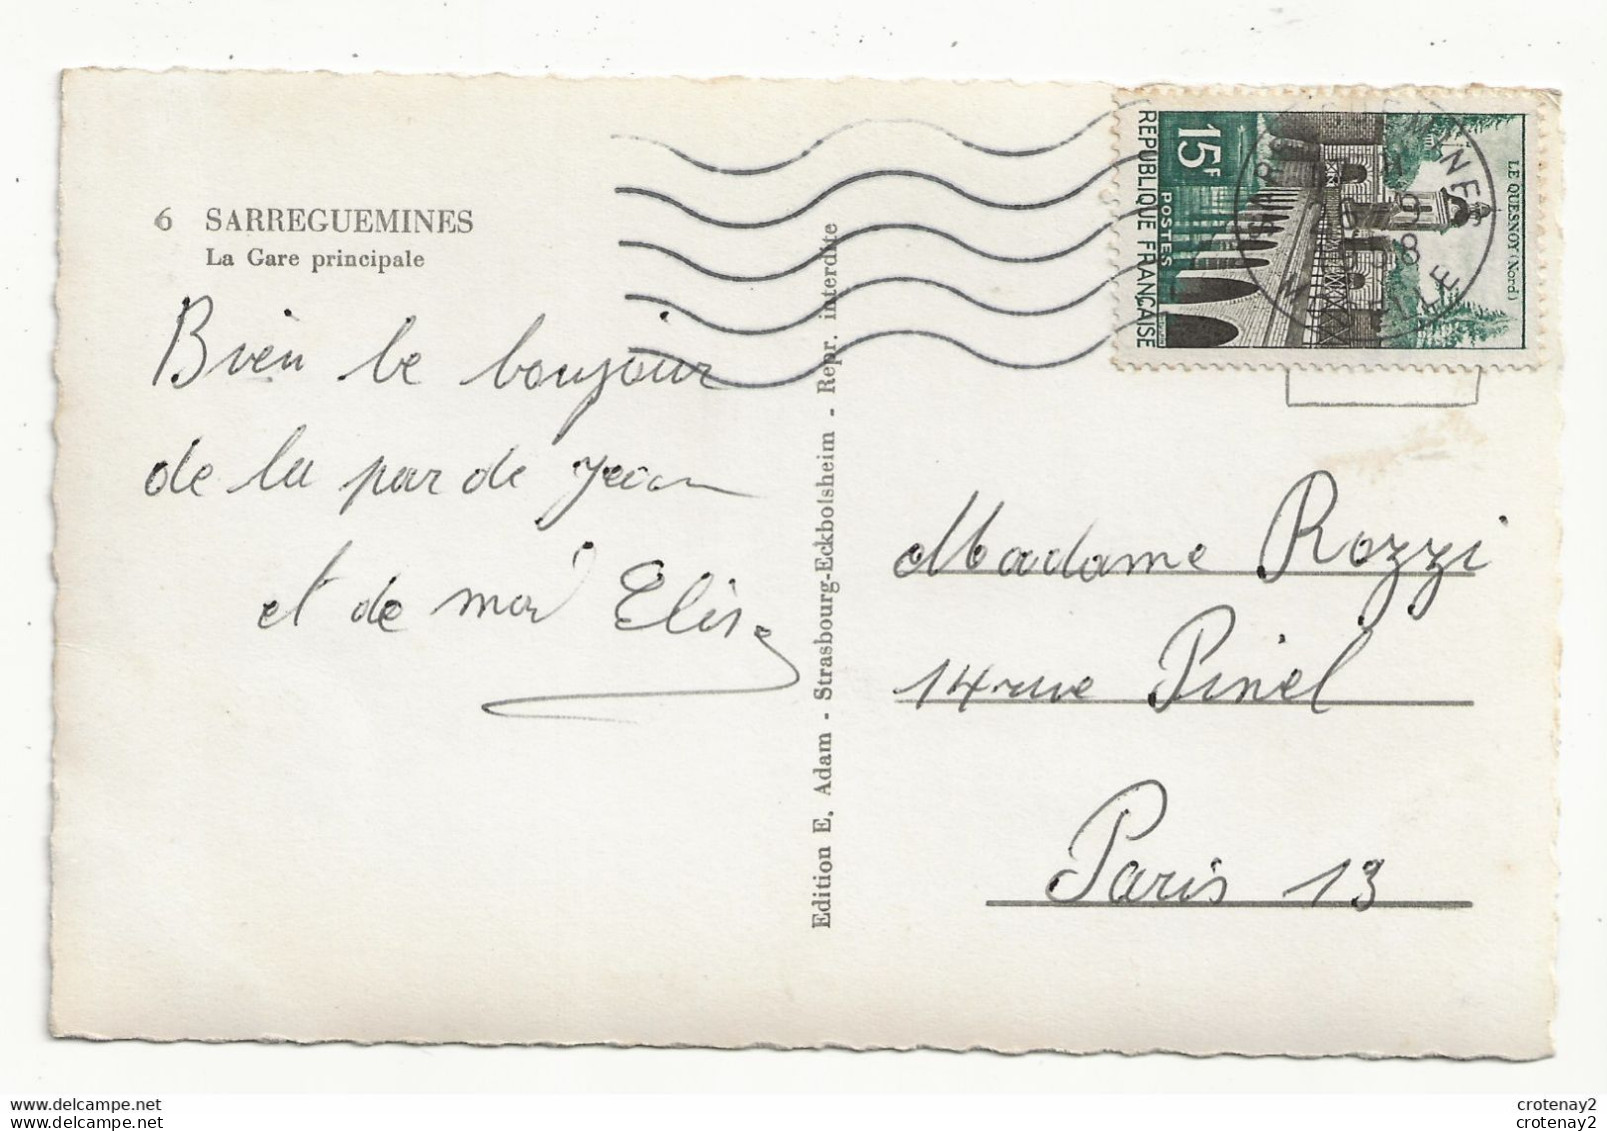 6 SARREGUEMINES
La Gare principale
Bien le bonjour
de la par de Jean
et de moi Elise
Edition E. Adam - Strasbourg-Eckbolsheim - Repr. interdite
15F
POSTES
REPUBLIQUE FRANÇAISE
LE QUESNOY (Nord)
Madame Rozzi
14 rue Pinel
Paris 13
www.delcampe.net
crotenay2
crotenay2